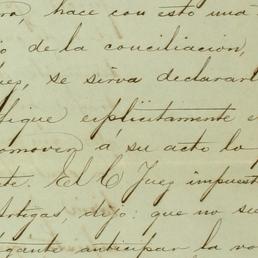 hace con esto una
de la conciliacion,
se sirva declarar
fique esplicitamente
á su acto lo
El C Juez impuest
rtigas, dijo: que no
anticipar la vo